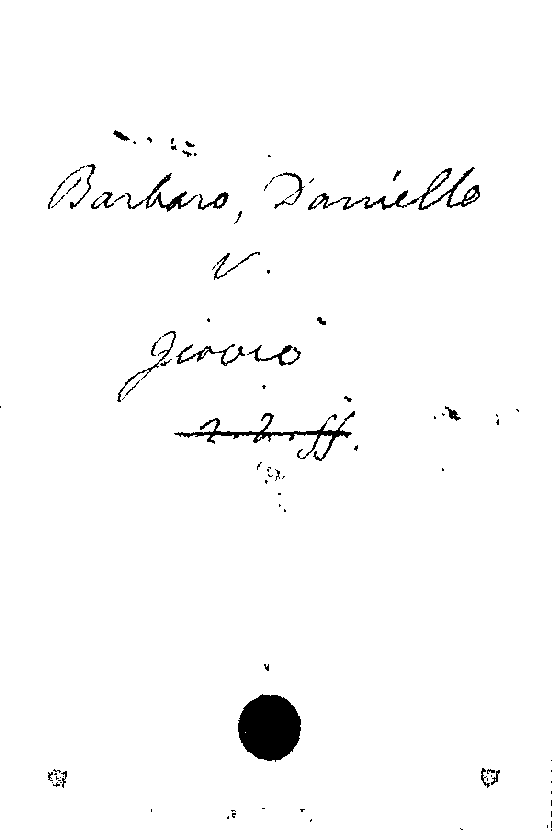 Barbaro, Daniello
V.
Giovio